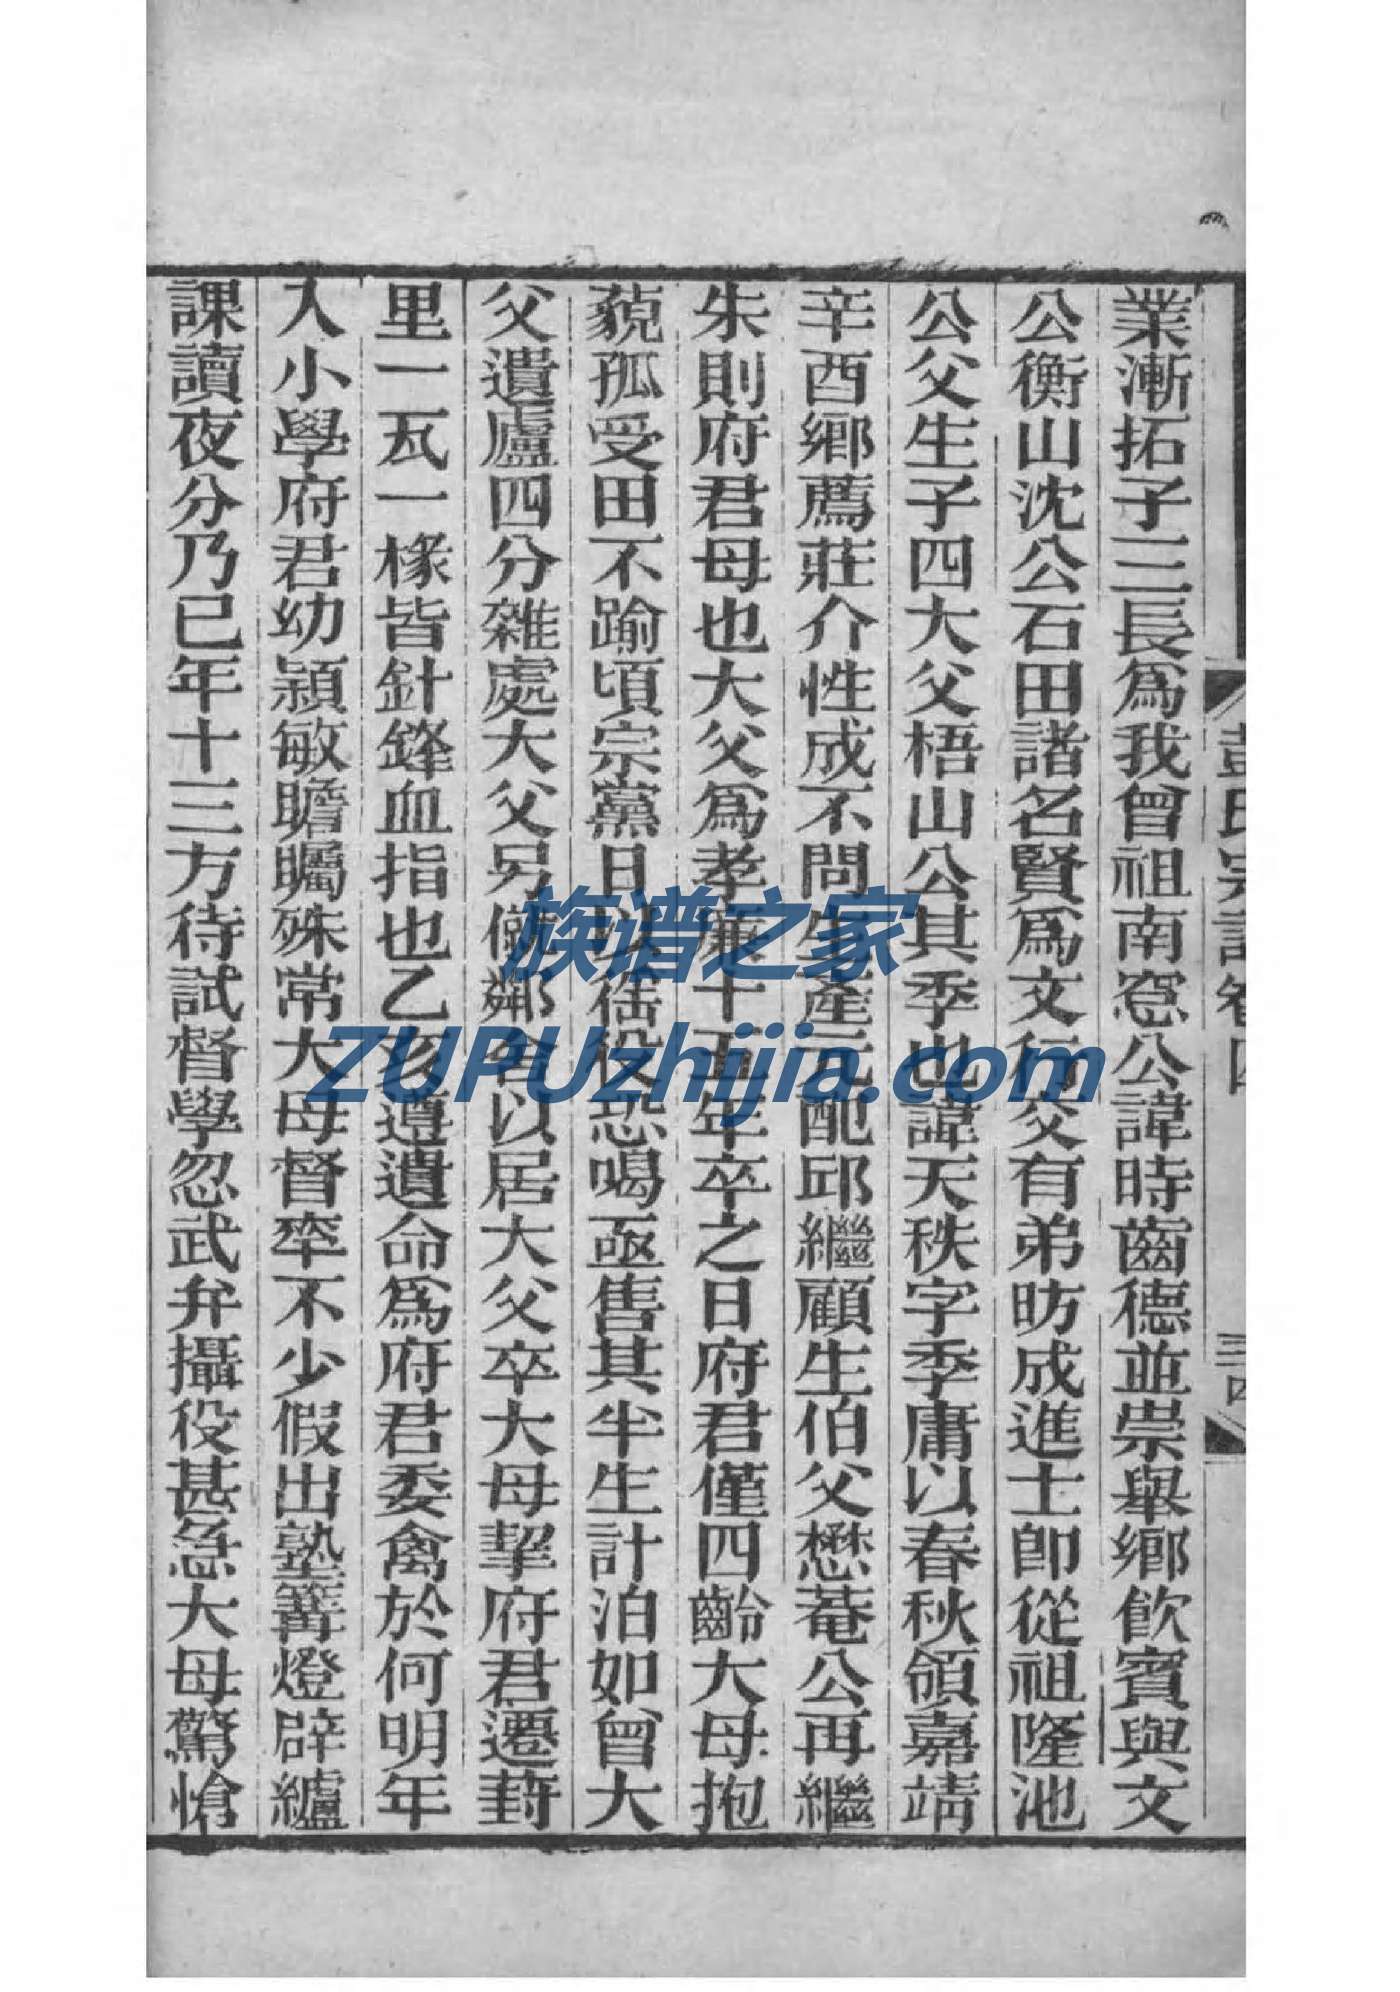 業漸拓子三長爲我曾祖南窓公諱時齒德並崇舉鄉飲賓與文
公衡山沈公石田諸名賢爲文行交有弟昉成進士卽從祖隆池
公父生子四大父梧山公其季也諱天秩字季庸以春秋領嘉靖
辛酉鄉薦莊介性成不問生產元配邱繼顧生伯父懋菴公再繼
朱則府君母也大父爲孝廉十五年卒之日府君僅四齡大母抱
藐孤受田不踰頃宗黨日以徭役恐喝亟售其半生計泊如曾大
父遺廬四分雜處大父另僦鄰者以居大父卒大母挈府君遷葑
里一瓦一椽皆針鋒血指也乙亥遵遺命爲府君委禽於何明年
入小學府君幼潁敏瞻矚殊常大母督率不少假出塾篝燈辟纑
課讀夜分乃已年十三方待試督學忽武弁攝役甚急大母驚愴
彭氏宗譜卷四
三四
族谱之家
ZUPUzhijia.com